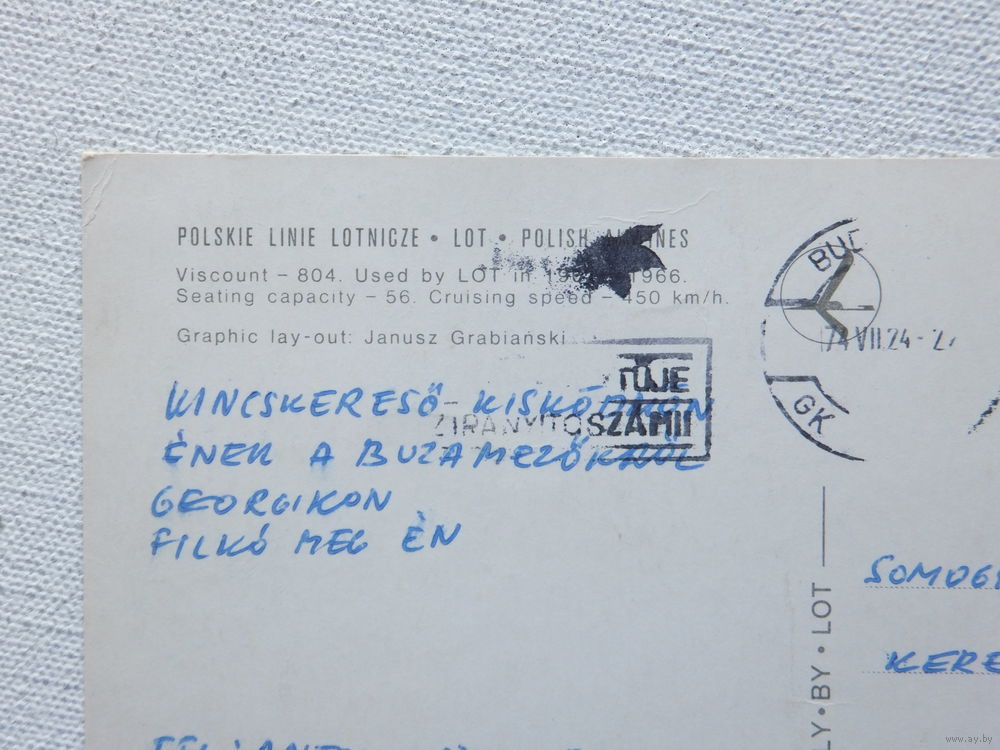 POLSKIE LINIE LOTNICZE • LOT • POLISH
Viscount – 804. Used by LOT in 1966.
Seating capacity – 56. Cruising speed – 450 km/h.
Graphic lay-out: Janusz Grabiański
TÜJE
IRÁNYÍTÓSZÁMII
KINCSKERESŐ KISKÓDMÖN
ÉNEK A BUZAMEZŐKRŐL
GEORGIKON
FILKÓ MEG ÉN
BUE
74 VII 24
GK
SOMOGY
KERE
LY • BY • LOT
www.ay.by